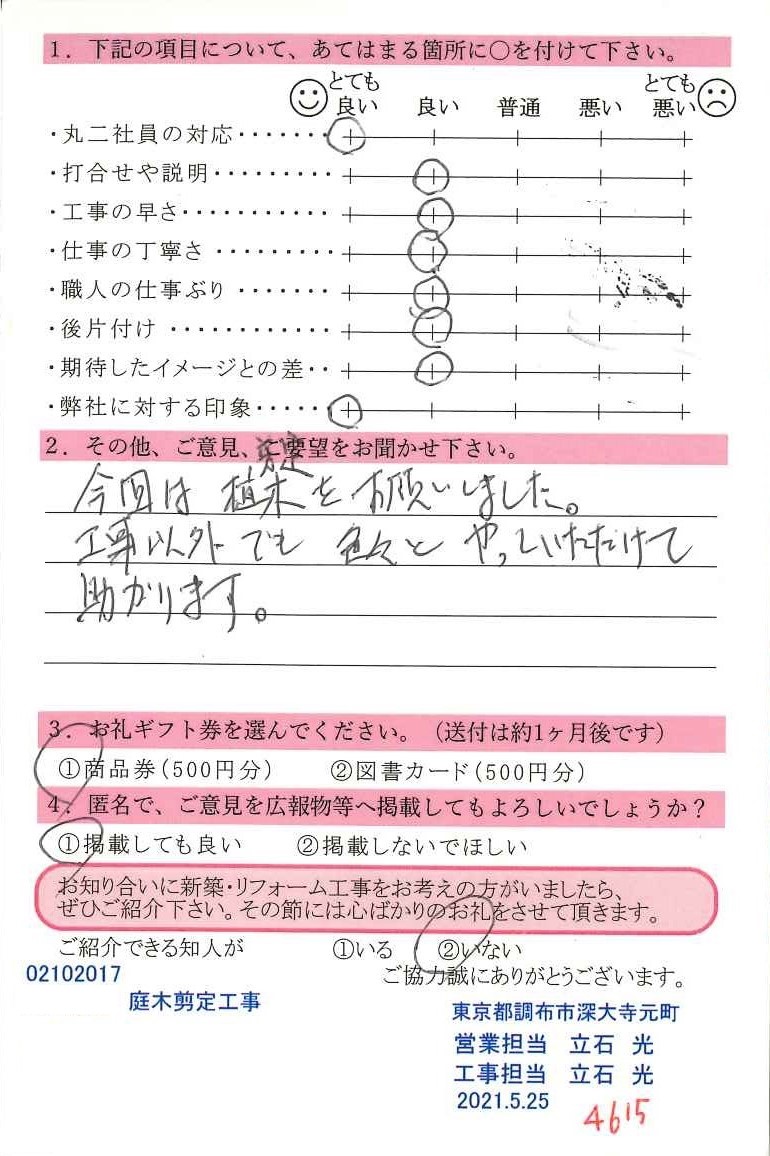 1．下記の項目について、あてはまる箇所に○を付けて下さい。
とても良い 良い 普通 悪い とても悪い
・丸二社員の対応・・・・・・・
・打合せや説明・・・・・・・・・
・工事の早さ・・・・・・・・・・・
・仕事の丁寧さ・・・・・・・・・
・職人の仕事ぶり・・・・・・・
・後片付け・・・・・・・・・・・・
・期待したイメージとの差・・
・弊社に対する印象・・・・・
2．その他、ご意見、ご要望をお聞かせ下さい。
剪定
今回は植木をお願いしました。
工事以外でも色々とやっていただけて
助かります。
3．お礼ギフト券を選んでください。（送付は約1ヶ月後です）
①商品券(500円分) ②図書カード(500円分)
4．匿名で、ご意見を広報物等へ掲載してもよろしいでしょうか？
①掲載しても良い ②掲載しないでほしい
お知り合いに新築・リフォーム工事をお考えの方がいましたら、
ぜひご紹介下さい。その節には心ばかりのお礼をさせて頂きます。
ご紹介できる知人が ①いる ②いない
ご協力誠にありがとうございます。
02102017
庭木剪定工事
東京都調布市深大寺元町
営業担当 立石 光
工事担当 立石 光
2021.5.25
4615